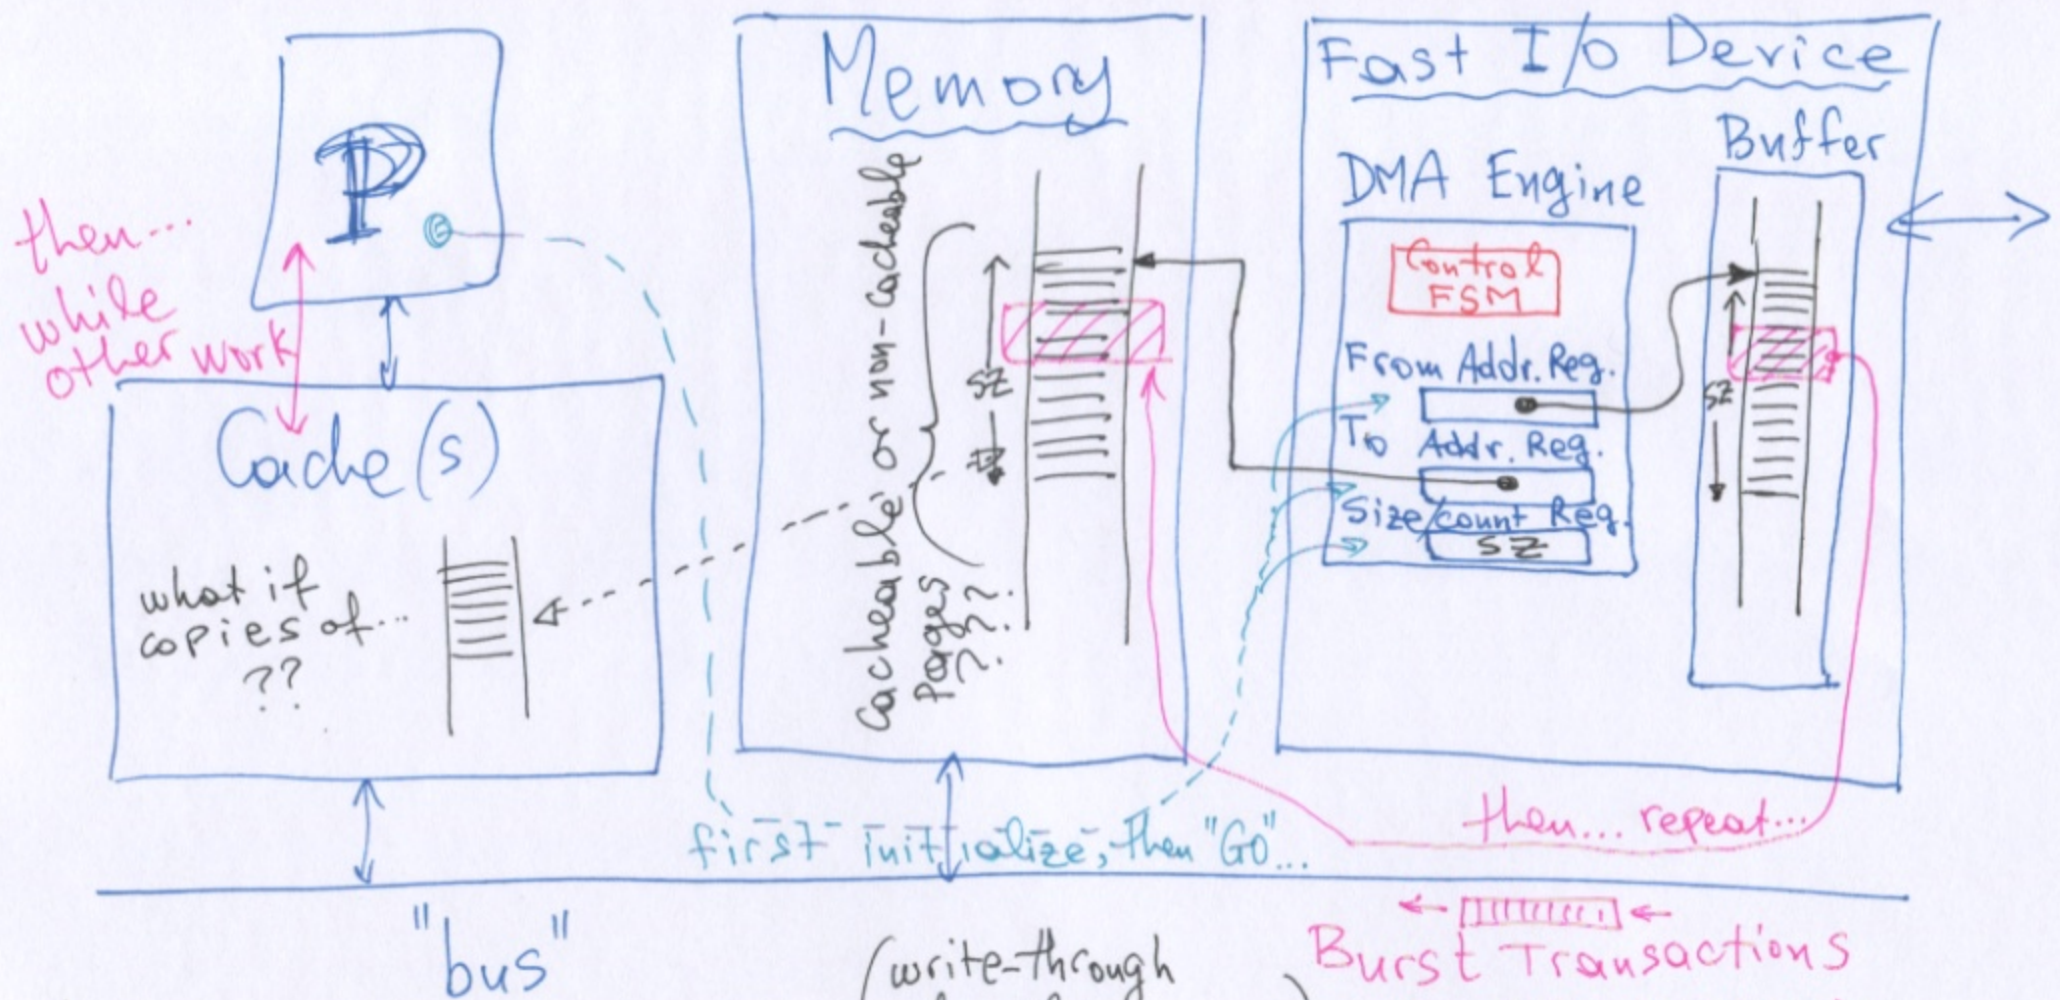 P
then...
while
other work
Cache(s)
what if
copies of...
??
Memory
Cacheable or non-Cacheable
Pages
???
sz
Fast I/O Device
DMA Engine
Control
FSM
From Addr. Reg.
To Addr. Reg.
Size/count Reg.
sz
Buffer
sz
first initialize, then "GO"...
then... repeat...
"bus"
(write-through
Burst Transactions